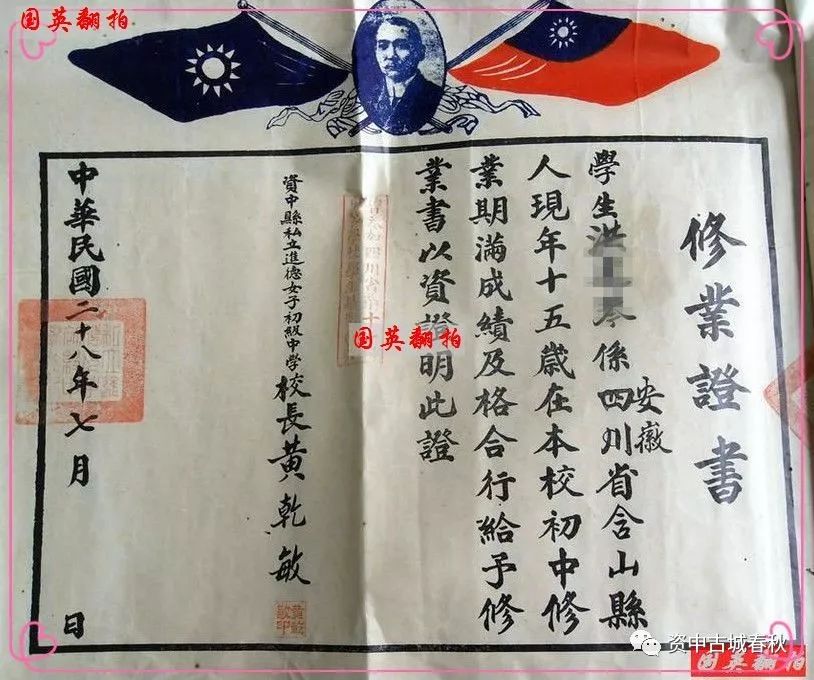 国英翻拍
修業證書
學生洪
係四川省含山縣
安徽
人現年十五歲在本校初中修
業期滿成績及格合行給予修
業書以資證明此證
国英翻拍
資中縣私立進德女子初級中学校長黄乾敏
黄乾敏印
中華民國二十八年七月 日
资中古城春秋
国英翻拍